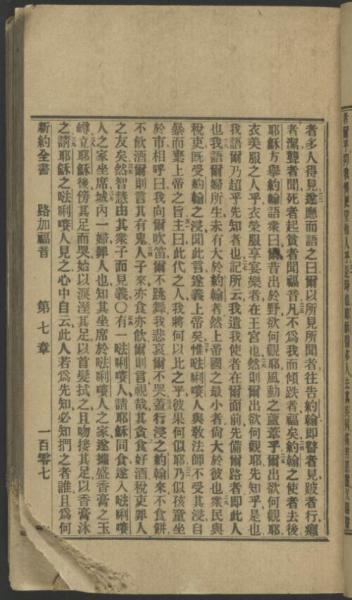 者多人得見遂應而語之曰爾以所見所聞者往告約翰即瞽者見跛者行癩
者潔聾者聞死者起貧者聞福音凡不為我而傾跌者福矣約翰之使者去後
耶穌乃舉約翰語衆曰曩昔出於野欲何觀耶風動之蘆葦乎爾出欲何觀耶
衣美服之人乎衣榮服享宴樂者在王宮也然則爾出欲何觀耶先知乎是也
我語爾乃超乎先知者也記所云我遣我使者在爾面前先備爾路者即此人
也我語爾婦所生未有大於約翰者然上帝國之最小者尙大於彼也衆民與
稅吏既受約翰之浸聞此言遂義上帝矣惟𠵽唎㘔人與教法師不受其浸自
暴而棄上帝之旨主曰此代之人我將何以比之乎彼果何似耶乃似孩童坐
於市相呼曰我向爾吹笛爾不跳舞我悲哀爾不哭蓋行浸之約翰來不食餅
不飲酒爾則言其有鬼人子來亦食亦飲爾則言視哉其貪食好酒稅吏罪人
之友矣然智慧由其衆子而見義〇有一𠵽唎㘔人請耶穌同食遂入𠵽唎㘔
人之家坐席城內一婦罪人也知其坐席於𠵽唎㘔人之家遂攜盛香膏之玉
罇立耶穌後傍其足而哭始以淚溼其足以首髮拭之且吻接其足以香膏沐
之請耶穌之𠵽唎㘔人見之心中自云此人若為先知必知捫之者誰且為何
新約全書 路加福音 第七章 一百零七